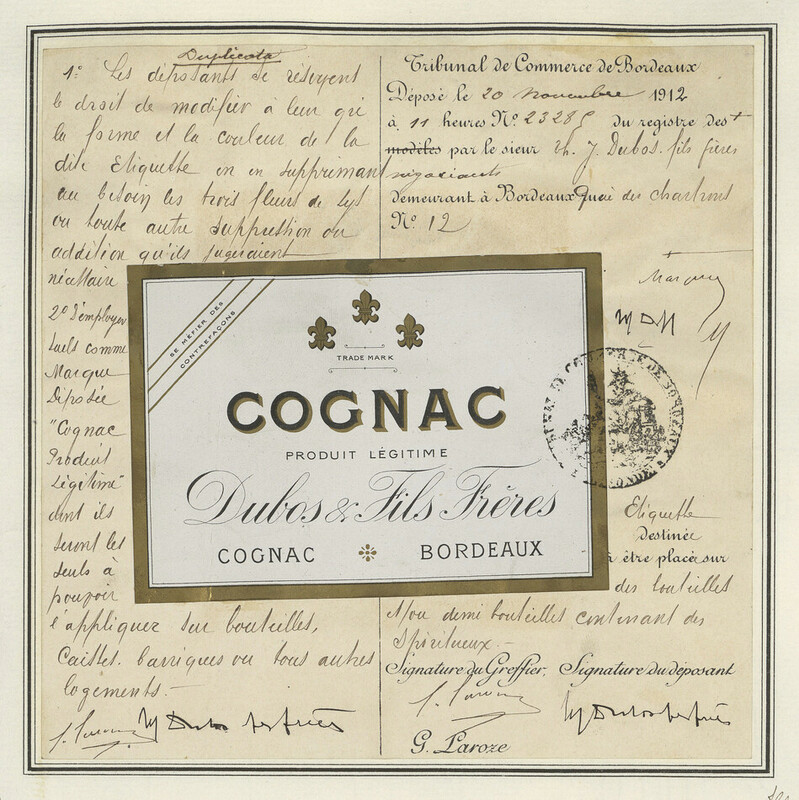 Duplicata
1º Les déposants se réservent
le droit de modifier à leur gré
la forme et la couleur de la
dite Etiquette en en supprimant
au besoin les trois fleurs de Lys
ou toute autre suppression ou
addition qu'ils jugeraient
nécessaire
2º d'employer
seuls comme
Marque
Déposée
"Cognac
Produit
Légitime"
dont ils
seront les
seuls à
pouvoir
l'appliquer sur bouteilles,
Caisses, barriques ou tous autres
logements.-
Tribunal de Commerce de Bordeaux
Déposé le 20 novembre 1912
à 11 heures Nº 23285 du registre des
modèles par le sieur J. Dubos fils frères
négociants
demeurant à Bordeaux Quai des Chartrons
Nº 12
SE MÉFIER DES
CONTREFAÇONS
TRADE MARK
COGNAC
PRODUIT LÉGITIME
Dubos & Fils Frères
COGNAC BORDEAUX
Etiquette
destinée
à être placée sur
des bouteilles
et/ou demi bouteilles contenant des
Spiritueux.-
Signature du Greffier, Signature du déposant
G. Laroze